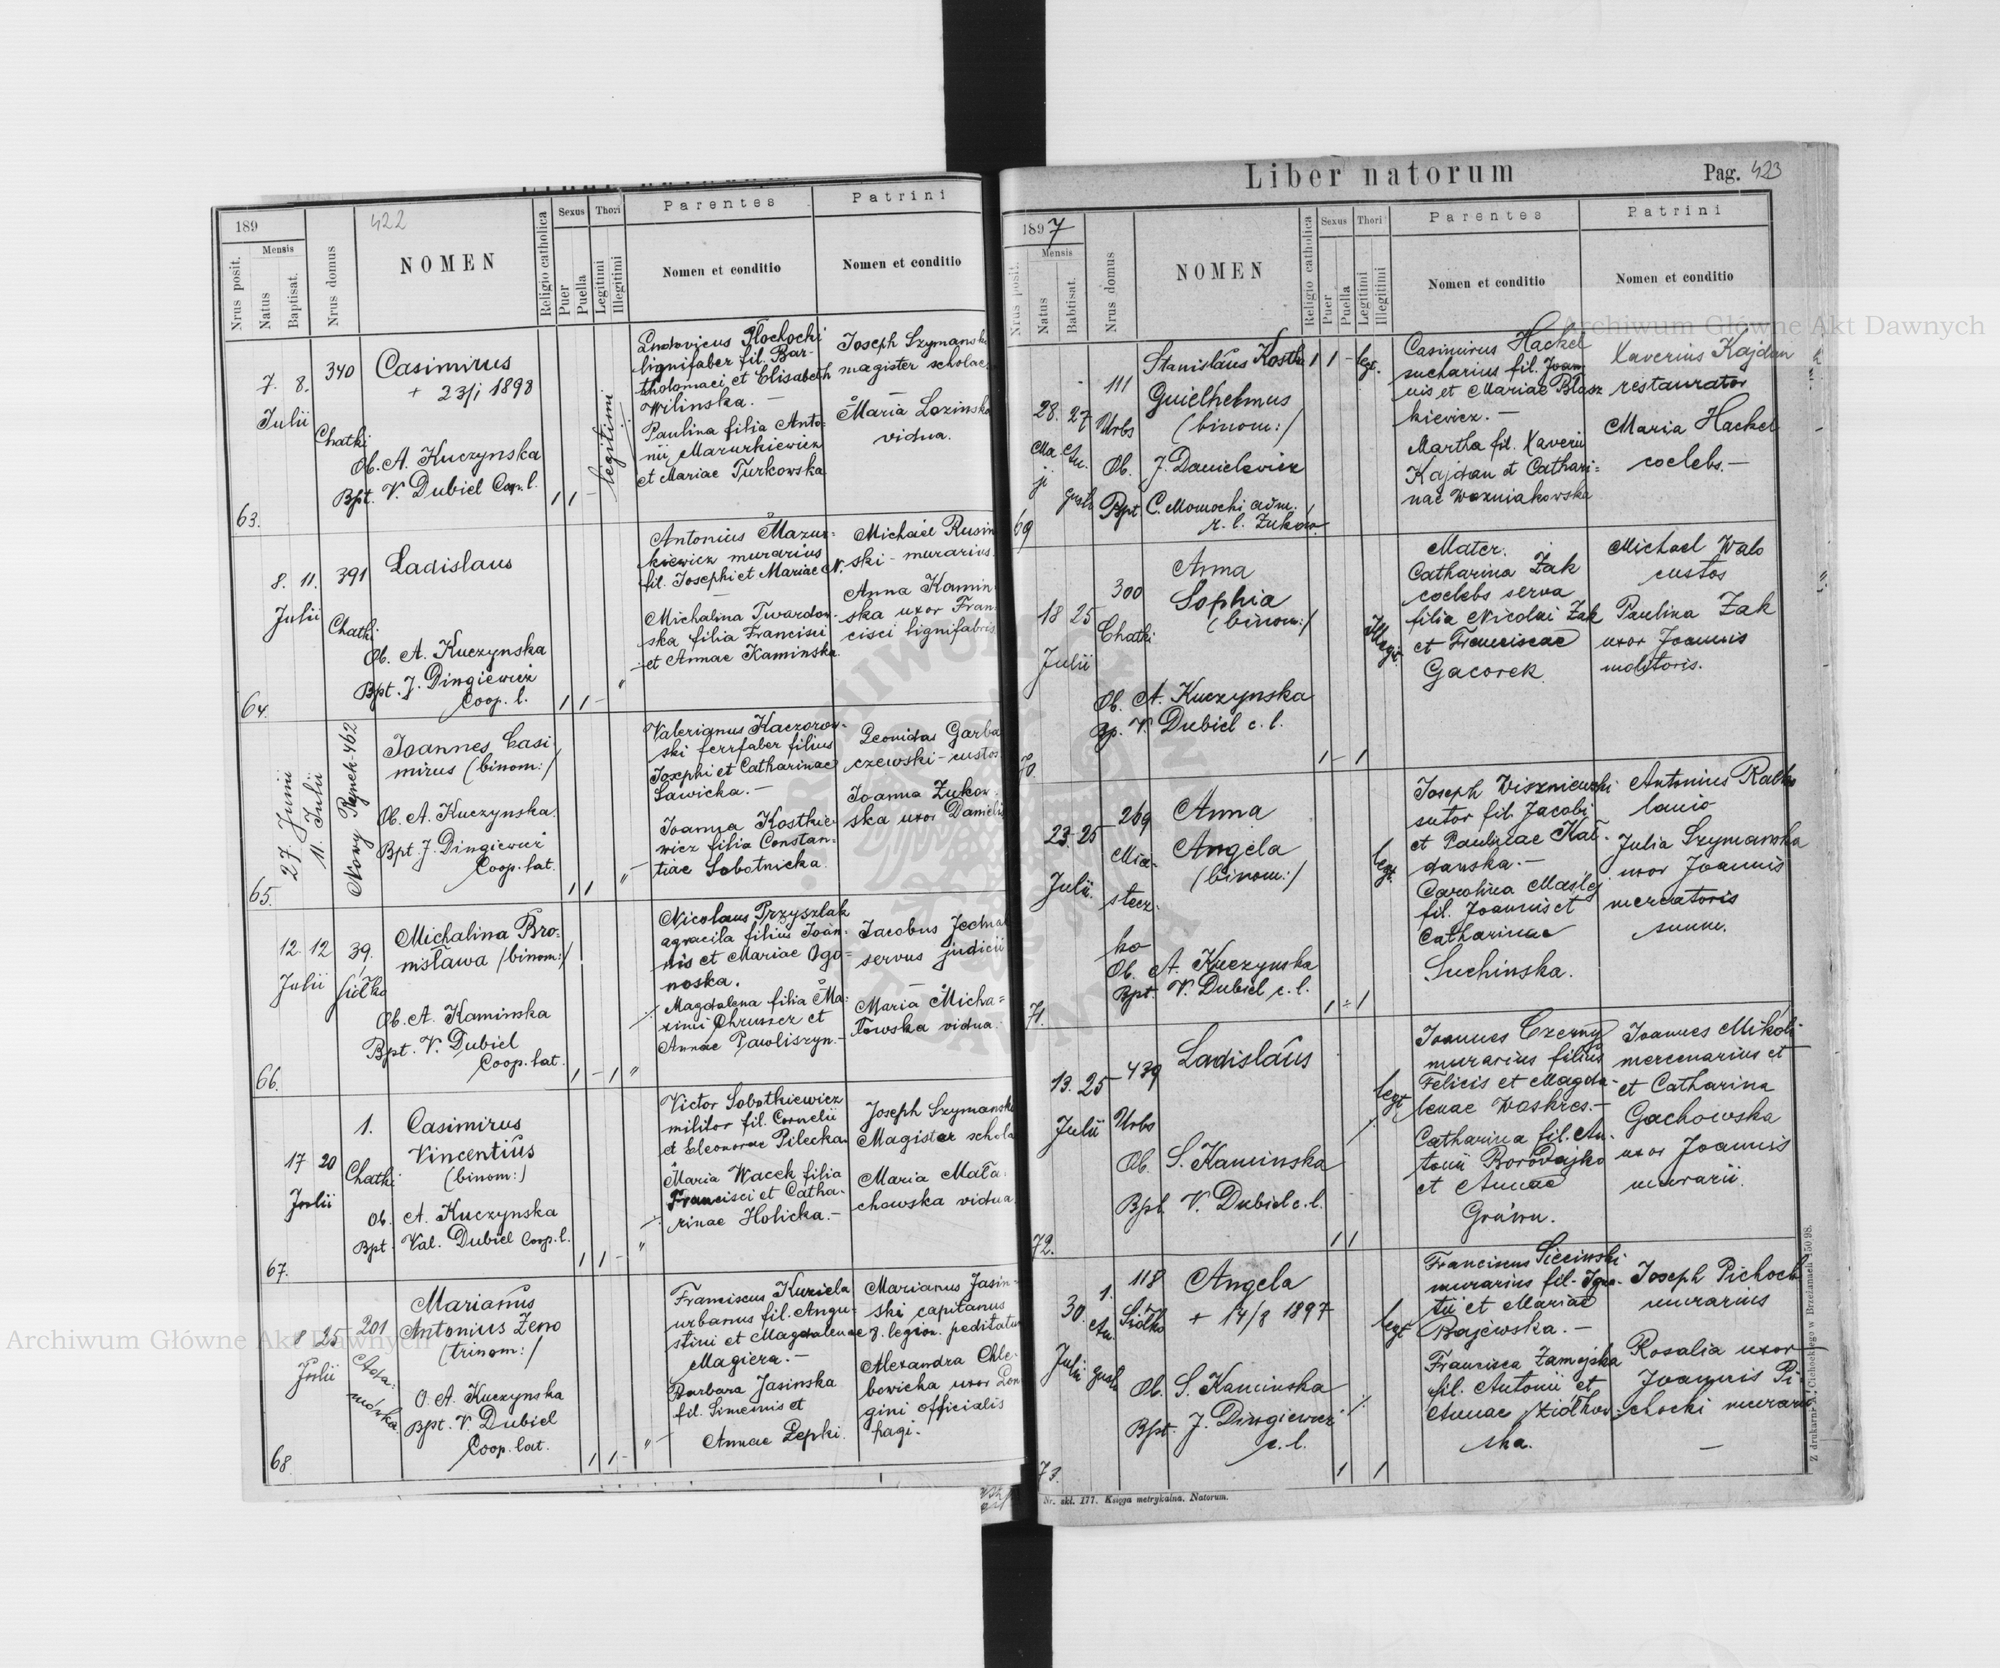 422
189
Nrus posit.
Mensis
Natus
Baptisat.
Nrus domus
NOMEN
Religio catholica
Sexus
Puer
Puella
Thori
Legitimi
Illegitimi
Parentes
Nomen et conditio
Patrini
Nomen et conditio
63.
7. 8.
Julii
340
Chatki
Casimirus
+ 23/1 1898
Ob. A. Kuczynska
Bpt. V. Dubiel Coop. l.
1 1 -
legitimi
Ludovicus Płochocki
lignifaber fil. Bar-
tholomaei et Elisabeth
Wilinska. —
Paulina filia Anto-
nii Mazurkiewicz
et Mariae Turkowska
Joseph Szymanski
magister scholae
Maria Lozinska
vidua.
64.
8. 11.
Julii
391
Chatki
Ladislaus
Ob. A. Kuczynska
Bpt. J. Dingiewicz
Coop. l.
1 1 -
"
Antonius Mazur-
kiewicz murarius
fil. Josephi et Mariae N.
Michalina Twardow-
ska filia Francisci
et Annae Kaminska
Michael Rusin
ski - murarius.
Anna Kamin
ska uxor Fran
cisci lignifabris
65.
27. Junii
11. Julii
Nowy Rynek - 462
Joannes Casi
mirus (binom:)
Ob. A. Kuczynska.
Bpt. J. Dingiewicz
Coop. lat.
1 1
" -
Valerianus Kaczorow-
ski ferrfaber filius
Josephi et Catharinae
Sawicka. —
Joanna Kostkie-
wicz filia Constan-
tiae Sobotnicka.
Leonidas Garba
czewski - custos
Joanna Zukow-
ska uxor Danielis
66.
12. 12
Julii
39.
Siółko
Michalina Bro-
nisława (binom:)
Ob. A. Kaminska
Bpt. V. Dubiel
Coop. lat.
1 - 1 "
Nicolaus Przyszlak
agracila filius Joan-
nis et Mariae Ogo=
noska.
Magdalena filia Ma-
ximi Chruszcz et
Annae Pawliszyn. —
Jacobus Jechna
servus judicii
Maria Micha=
łowska vidua.
67.
17 20
Julii
1.
Chatki
Casimirus
Vincentius
(binom:)
Ob. A. Kuczynska
Bpt. Val. Dubiel Coop. l.
1 1 -
"
Victor Sobotkiewicz
militor fil. Cornelii
et Eleonorae Pilecka
Maria Wacek filia
Francisci et Catha-
rinae Holicka. —
Joseph Szymanski
Magister schola
Maria Mała-
chowska vidua
68.
8 25
Julii
201
Ada-
mówka
Marianus
Antonius Zeno
(trinom:)
O. A. Kuczynska
Bpt. V. Dubiel
Coop. lat.
1 1 -
" -
Franciscus Kuziela
urbanus fil. Augu-
stini et Magdalenae
Magiera. —
Barbara Jasinska
fil. Simeonis et
Annae Lepki.
Marianus Jasin-
ski capitanus
8. legion. peditatus
Alexandra Chle-
bowicka uxor Lon
gini officialis
pagi.
Liber natorum
Pag. 423
1897
Nrus posit.
Mensis
Natus
Babtisat.
Nrus domus
NOMEN
Religio catholica
Sexus
Puer
Puella
Thori
Legitimi
Illegitimi
Parentes
Nomen et conditio
Patrini
Nomen et conditio
69
28. 27
Ma-
ji
Au-
gusti
111
Urbs
Stanislaus Kostka
Guielhelmus
(binom:)
Ob. J. Danielewicz
Bpt C. Momocki adm.
r. l. Żuków.
1 1 - leg.
Casimirus Hackel
sucharius fil. Joan
nis et Mariae Błasz
kiewicz. —
Martha fil. Xaverii
Kajdan et Cathari=
nae Wozniakowska
Xaverius Kajdan
restaurator
Maria Hackel
coelebs. —
70.
18 25
Julii
300
Chatki
Anna
Sophia
(binom:)
Ob. A. Kuczynska
Bp. V. Dubiel c. l.
1 - 1
Illegit.
Mater.
Catharina Żak
coelebs serva
filia Nicolai Żak
et Franciscae
Gacorek
Michael Walo
custos
Paulina Żak
uxor Joannis
molitoris.
71.
23. 25
Julii
269
Mia-
stecz-
ko
Anna
Angela
(binom:)
Ob. A. Kuczynska
Bpt. V. Dubiel c. l.
1 - 1
legt.
Joseph Wiszniewski
sutor fil. Jacobi
et Paulinae Kał-
danska. —
Carolina Maślej
fil. Joannis et
Catharinae
Suchinska.
Antonius Ratko
lanio
Julia Szymanska
uxor Joannis
mercatoris
suum.
72.
13. 25
Julii
439
Urbs
Ladislaus
Ob. S. Kaminska
Bpt. V. Dubiel c. l.
1 1
legt
Joannes Czerny
murarius filius
Felicis et Magda-
lenae Woskres. —
Catharina fil. An-
tonii Borodajko
et Annae
Joannes Mikoli-
mercenarius et
et Catharina
Gachowska
uxor Joannis
murarii.
73.
30.
Julii
1.
Au-
gusti
118
Siółko
Angela
+ 14/8 1897
Ob. S. Kaminska
Bpt. J. Dingiewicz
c. l.
1 1
legt
Franciscus Siecinski
murarius fil. Igna-
tii et Mariae
Bajewska. —
Francisca Zamojska
fil. Antonii et
Annae Ziółkow-
ska.
Joseph Pichocki
murarius
Rosalia uxor
Joannis Pi
chocki murarii
—
Nr. skł. 177. Księga metrykalna. Natorum.
Z drukarni A. Cichockiego w Brzeżanach 150 98.
Archiwum Główne Akt Dawnych
Archiwum Główne Akt Dawnych